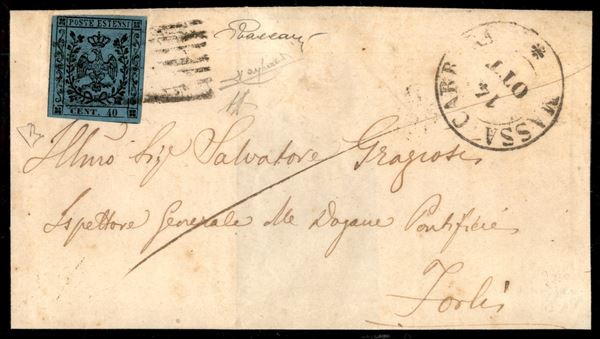 POSTE ESTENSI
CENT. 40
MASSA CARRARA
14 OTT
Illmo Sigr Salvatore Graziosi
Ispettore Generale Alle Dogane Pontificie
Forlì